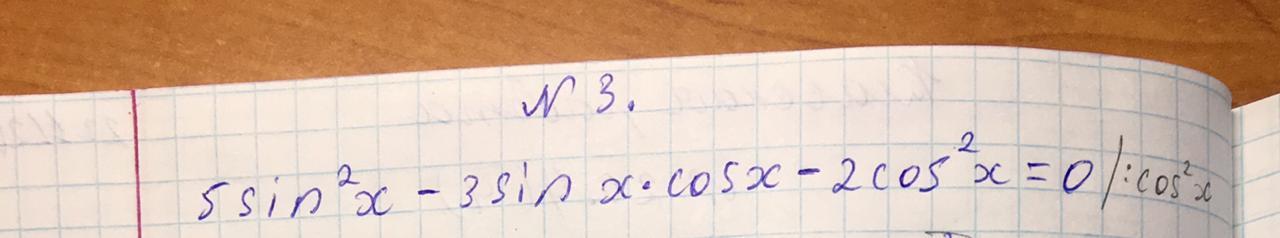 N 3.
5sin²x - 3sin x·cosx - 2cos²x = 0 /:cos²x